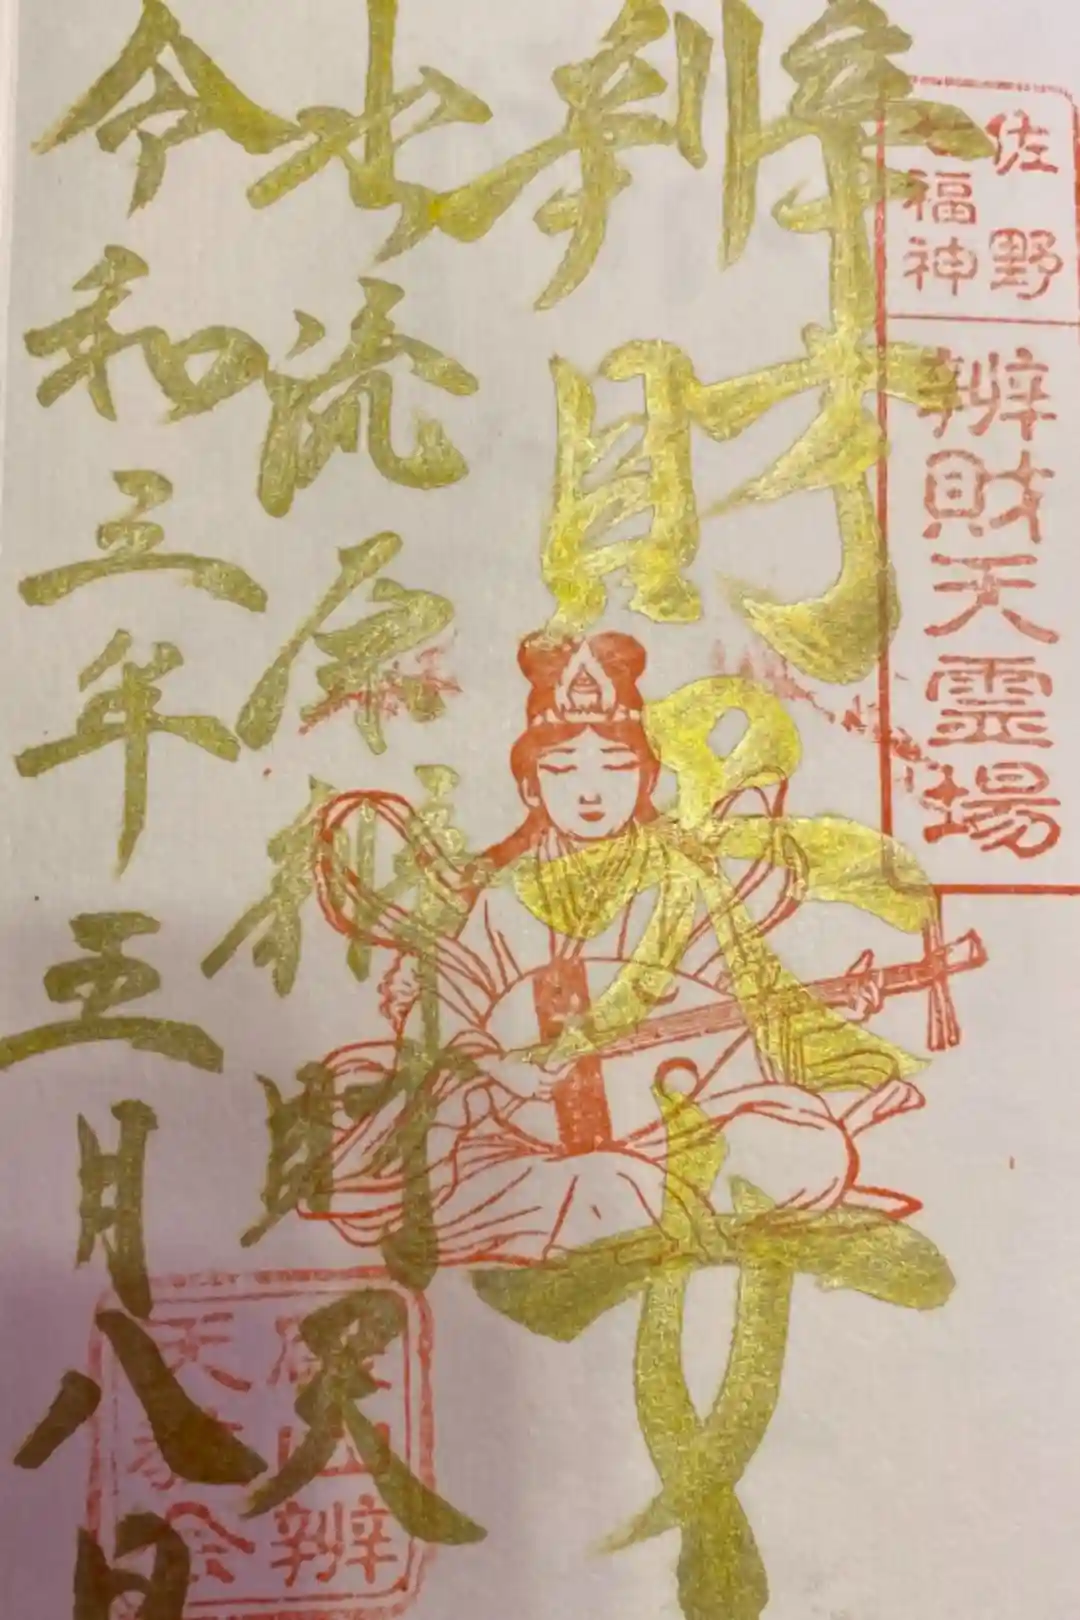 佐野
七福神
辨財天霊場
辨財天
出流原辨財天
令和三年五月八日
磯山辨
天